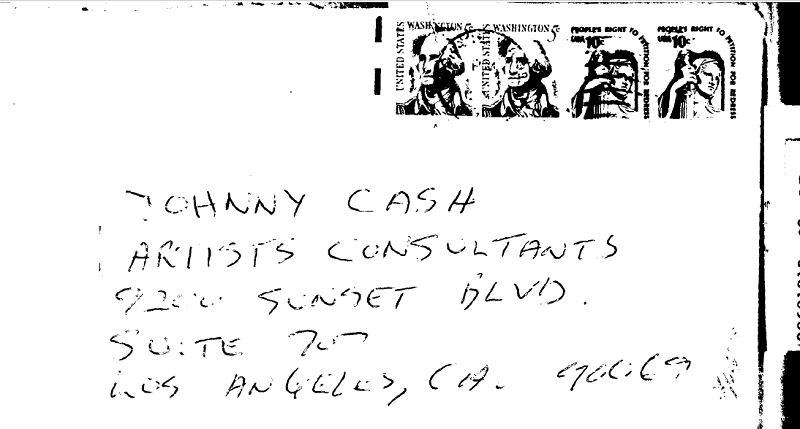 UNITED STATES WASHINGTON 5c UNITED STATES WASHINGTON 5c PEOPLE'S RIGHT TO PETITION FOR REDRESS USA 10c PEOPLE'S RIGHT TO PETITION FOR REDRESS USA 10c
JOHNNY CASH
ARTISTS CONSULTANTS
9200 SUNSET BLVD.
SUITE 707
LOS ANGELES, CA. 90069